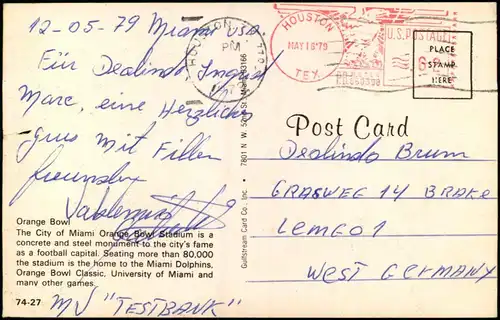 12-05-79 Miami USA
Für Dealindo Ingrid
Marc, eine Herzlichen
grus mit Fillen
freunden
Orange Bowl
The City of Miami Orange Bowl Stadium is a
concrete and steel monument to the city's fame
as a football capital. Seating more than 80,000
the stadium is the home to the Miami Dolphins,
Orange Bowl Classic, University of Miami and
many other games.
74-27
MV "TESTBANK"
HOUSTON
PM
Gulfstream Card Co., Inc.
HOUSTON
MAY 16'79
TEX.
U.S. POSTAGE
PLACE
STAMP
HERE
Post Card
Dealindo Brum
GRASWEG 14 BRAKE
LEMGO 1
WEST GERMANY